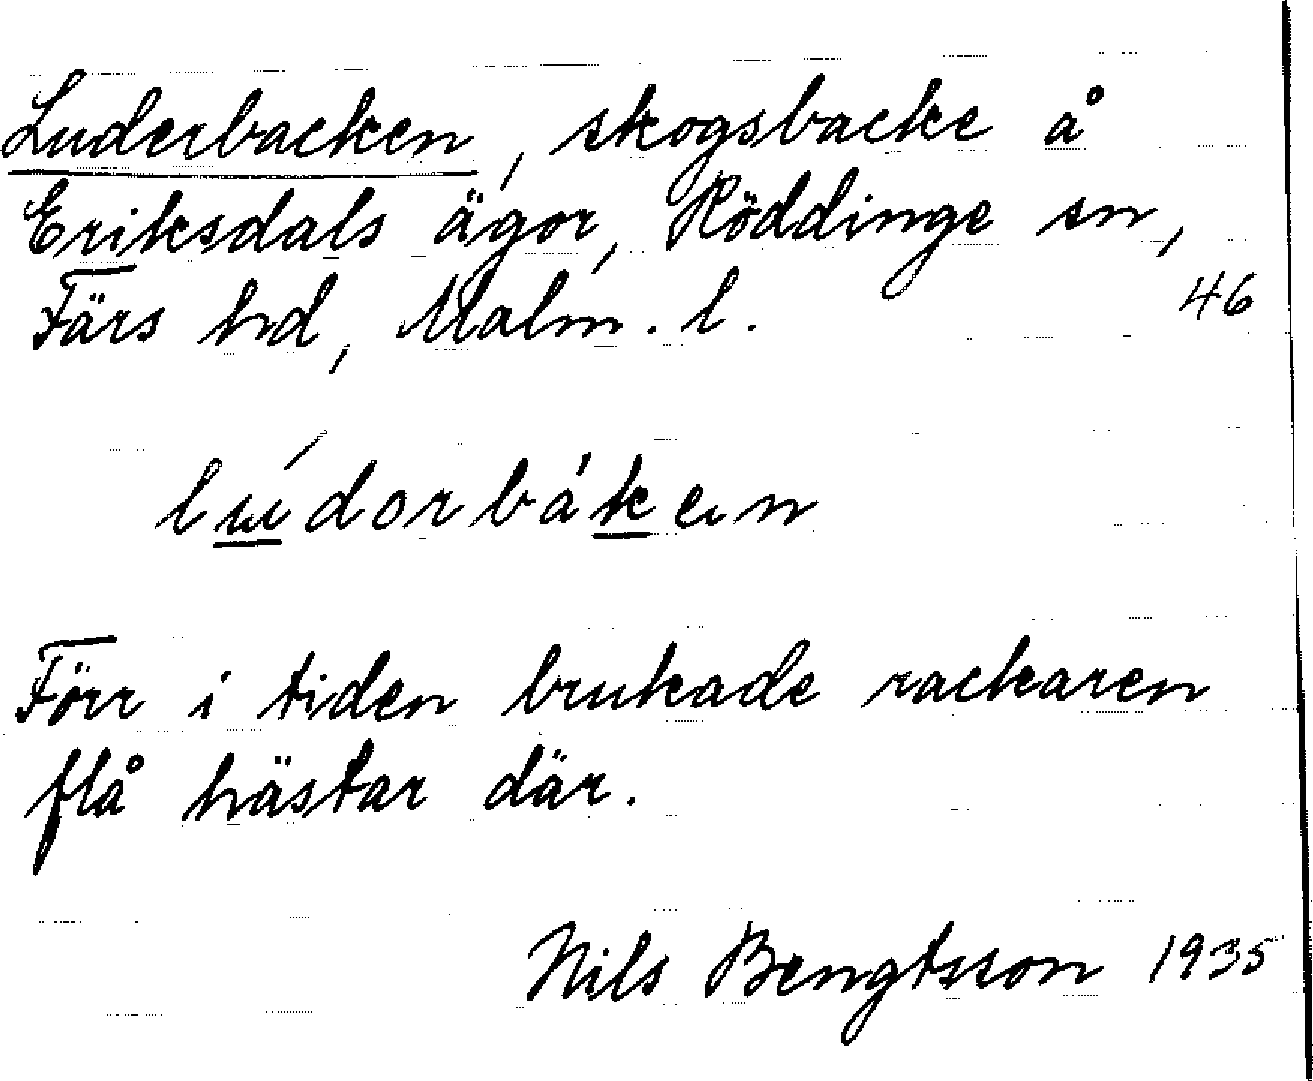 Luderbacken, skogsbacke å
Eriksdals ägor, Röddinge sn,
Färs hd, Malm. l. 46
Förr i tiden brukade rackaren
flå hästar där.
Nils Bengtsson 1935